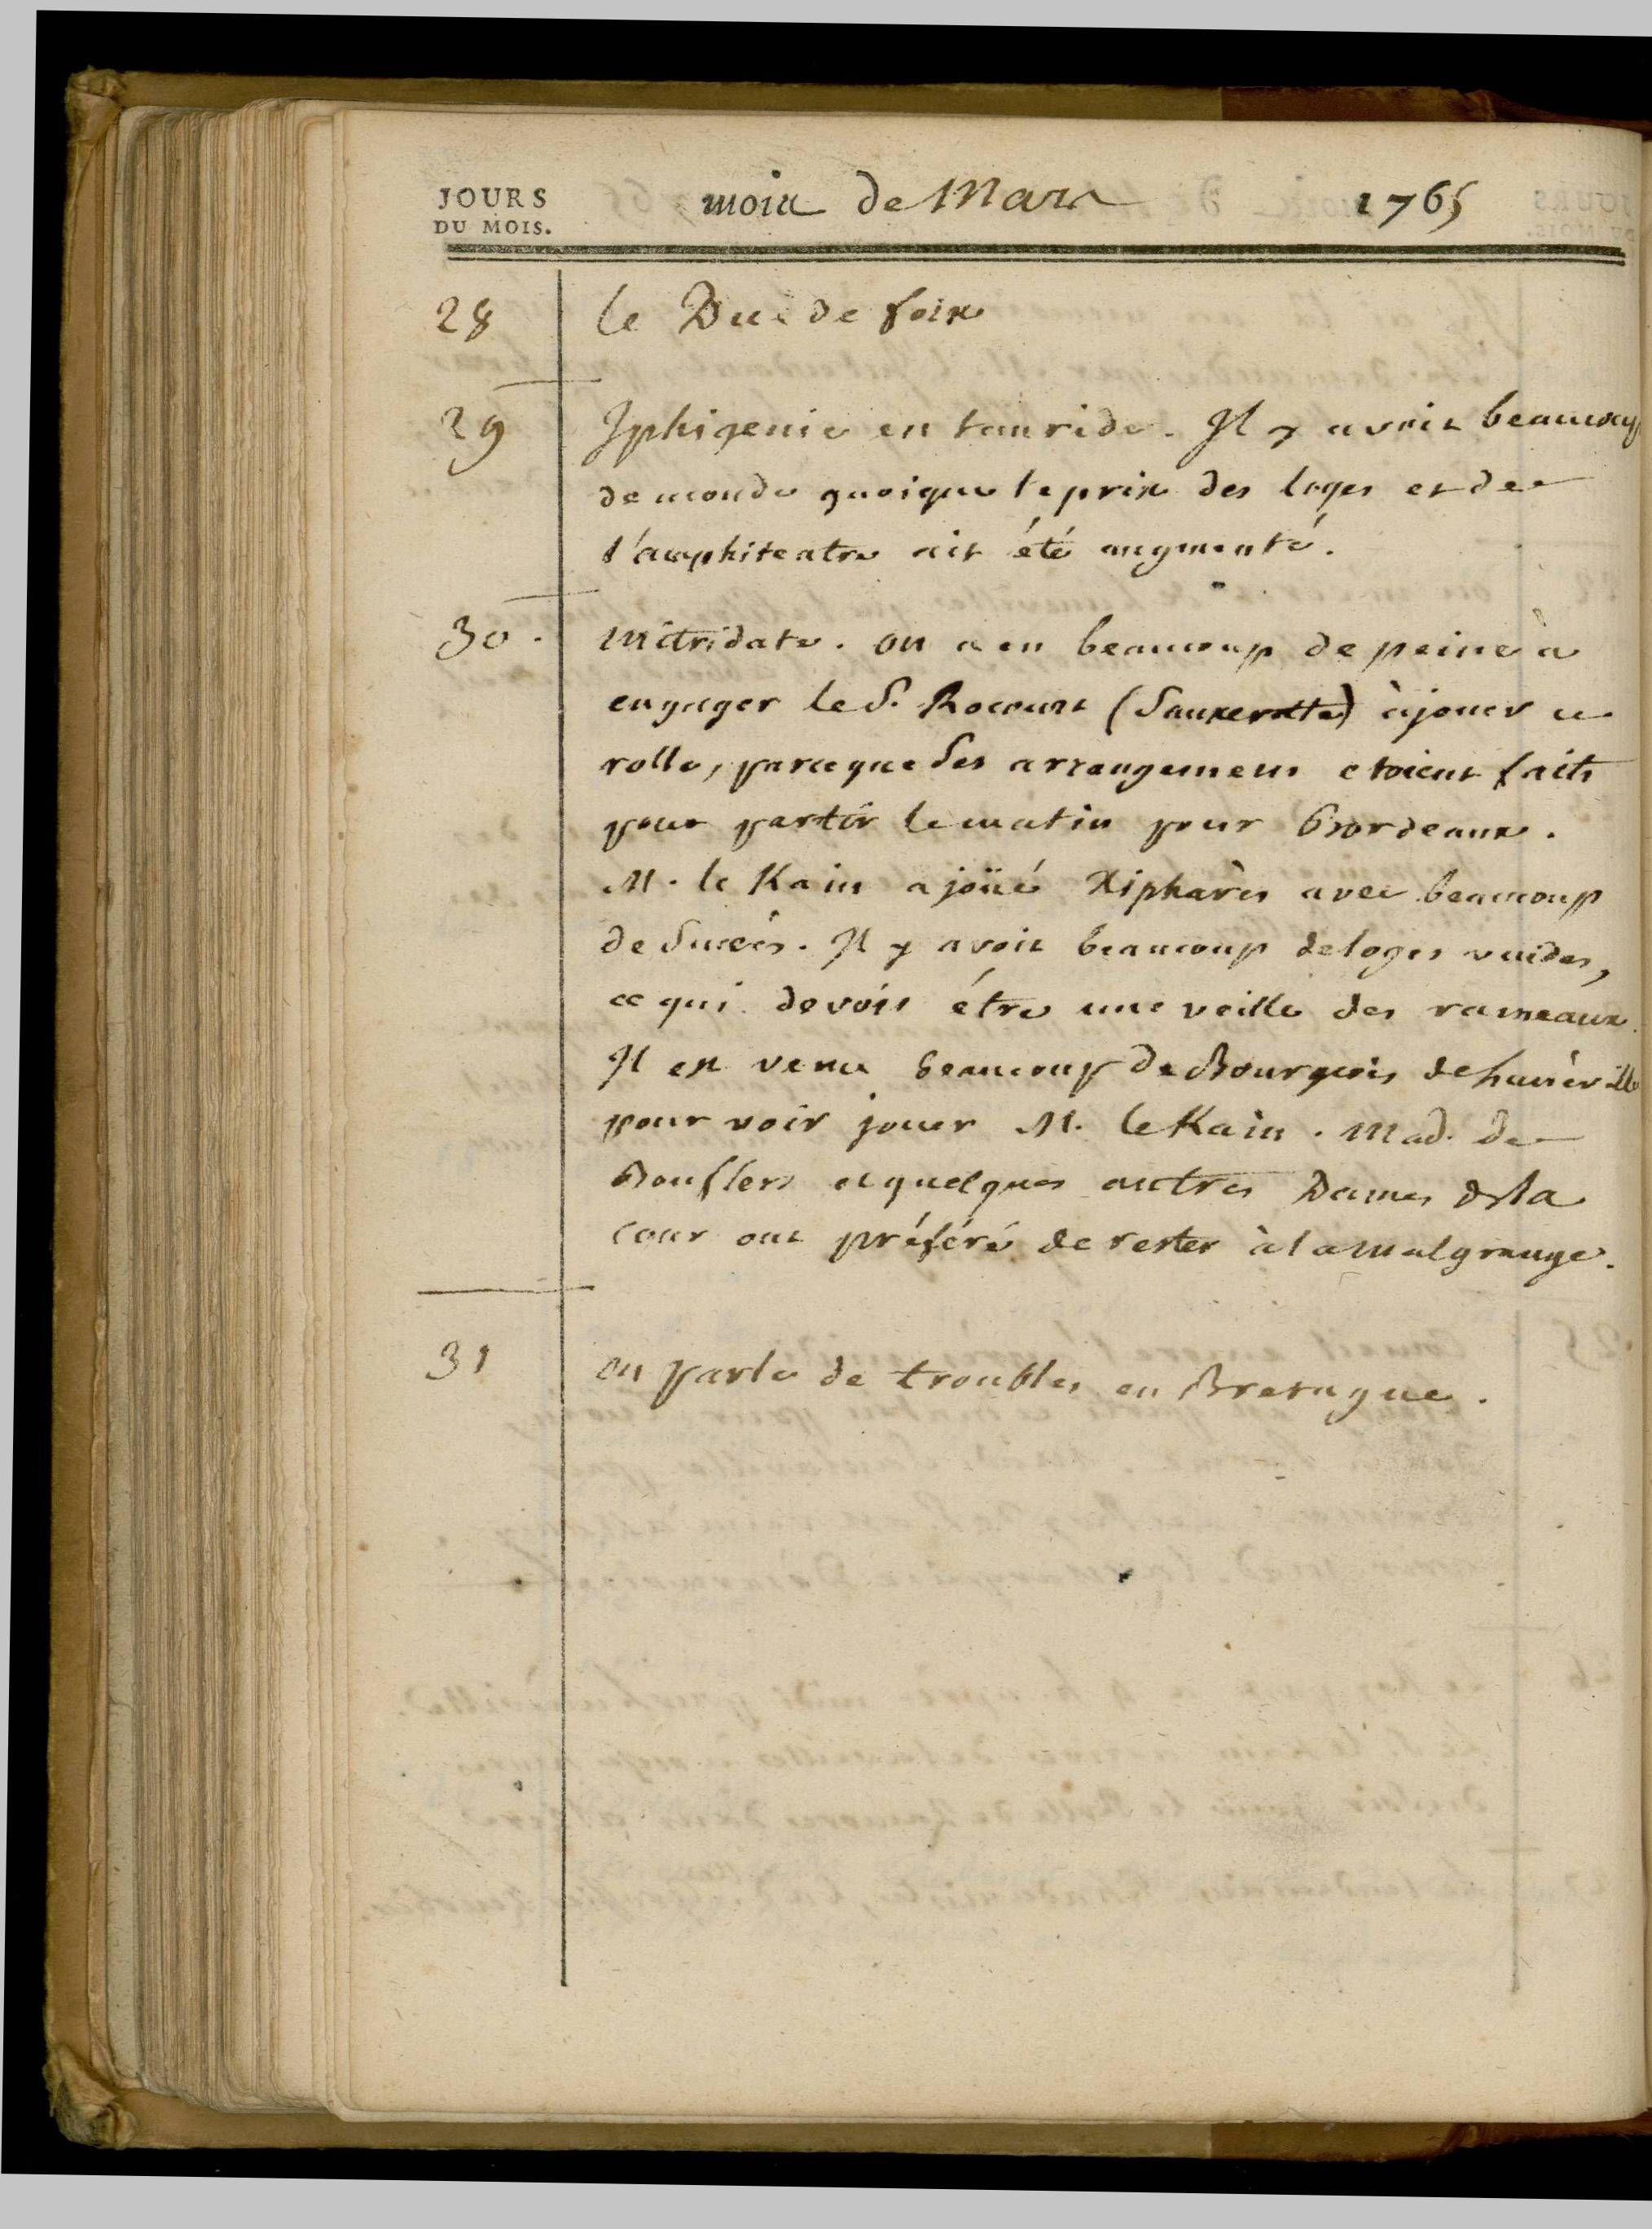 JOURS
DU MOIS.
mois de Mars 1765
28 le Duc de foix
29 Iphigenie en tauride. Il y avoit beaucoup
de monde quoique le prix des loges et de
l'amphiteatre ait été augmenté.
30. Mitridate. on a eu beaucoup de peine a
engager le S. Rocourt (Saucerotte) à jouer ce
rolle, parceque ses arrangemens etoient faits
pour partir le matin pour Bordeaux.
M. le Kain a joüé Xipharès avec beaucoup
de succès. Il y avoit beaucoup de loges vuides,
ce qui devoit être une veille des rameaux.
Il est venu beaucoup de Bourgeois de luneville
pour voir jouer M. le Kain. Mad. de
Bouflers et quelques autres Dames de la
cour ont préféré de rester à la malgrange.
31 on parle de troubles en Bretagne.